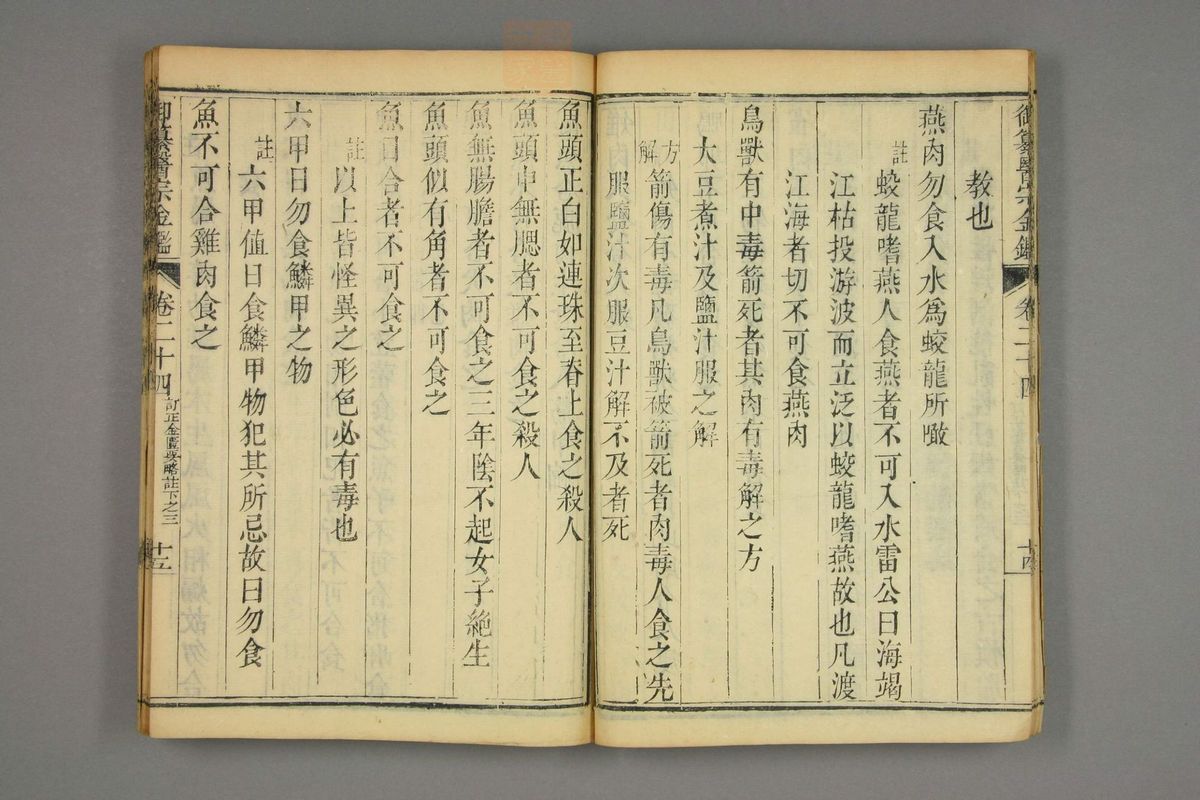 御纂醫宗金鑑 卷二十四 十四
教也
燕肉勿食入水為蛟龍所噉
註 蛟龍嗜燕人食燕者不可入水雷公曰海竭
江枯投游波而立泛以蛟龍嗜燕故也凡渡
江海者切不可食燕肉
鳥獸有中毒箭死者其肉有毒解之方
大豆煮汁及鹽汁服之解
方解 箭傷有毒凡鳥獸被箭死者肉毒人食之先
服鹽汁次服豆汁解不及者死
魚頭正白如連珠至脊上食之殺人
魚頭中無腮者不可食之殺人
魚無腸膽者不可食之三年陰不起女子絶生
魚頭似有角者不可食之
魚目合者不可食之
註 以上皆怪異之形色必有毒也
六甲日勿食鱗甲之物
註 六甲值日食鱗甲物犯其所忌故曰勿食
魚不可合雞肉食之
御纂醫宗金鑑 卷二十四 訂正金匱要略註下之三 十五